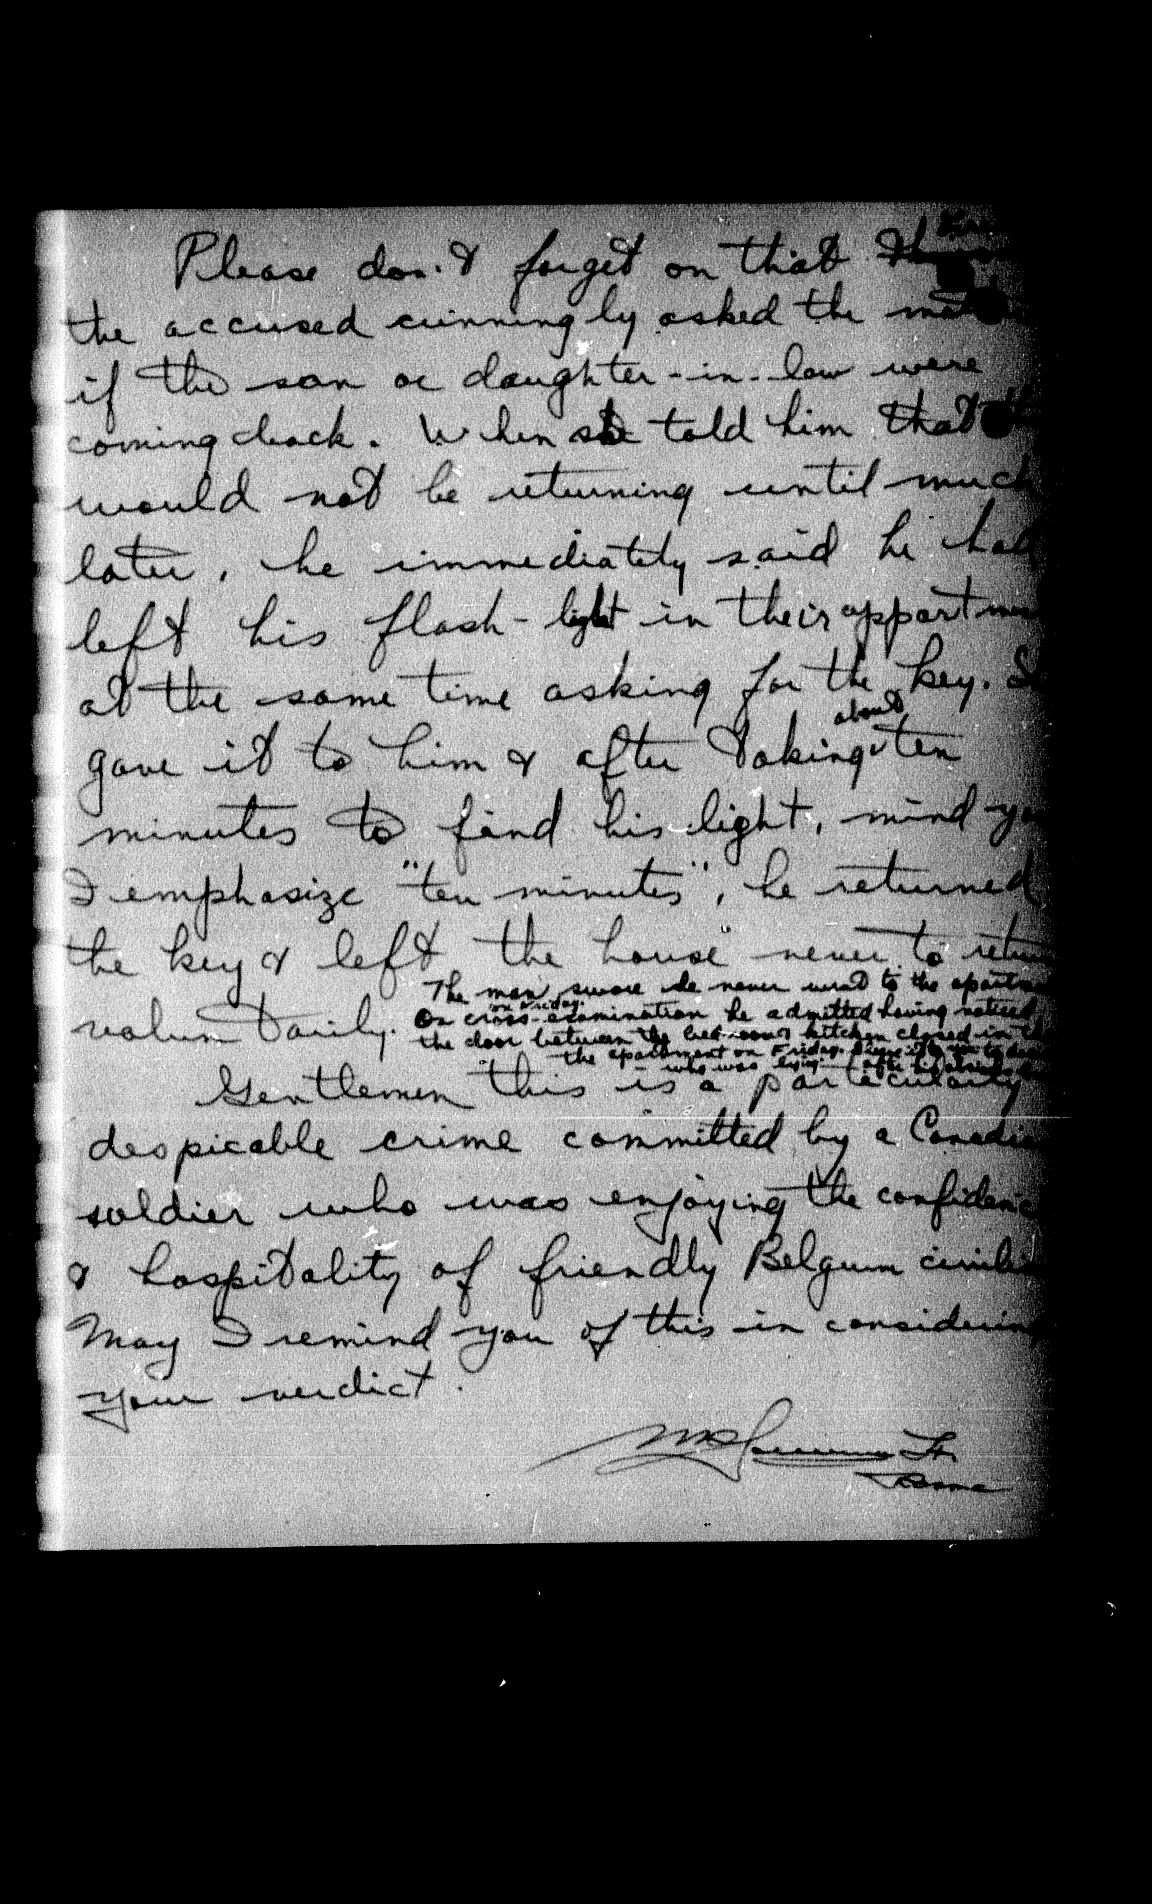 Please don't forget on that
the accused cunningly asked the
if the son or daughter-in-law were
coming back. When she told him that
would not be returning until much
later, he immediately said he had
left his flash-light in their appartment
at the same time asking for the key. She
gave it to him & after taking about ten
minutes to find his light, mind you
I emphasize "ten minutes", he returned
the key & left the house never to return
voluntarily. The man swore he never went to the apartment
on Friday.
On cross-examination he admitted having noticed
the door between the bed-room & kitchen closed in
the apartment on Friday.
- who was lying -
Gentlemen this is a particularly
despicable crime committed by a Canadian
soldier who was enjoying the confidence
& hospitality of friendly Belgum
May I remind you of this in considering
your verdict.